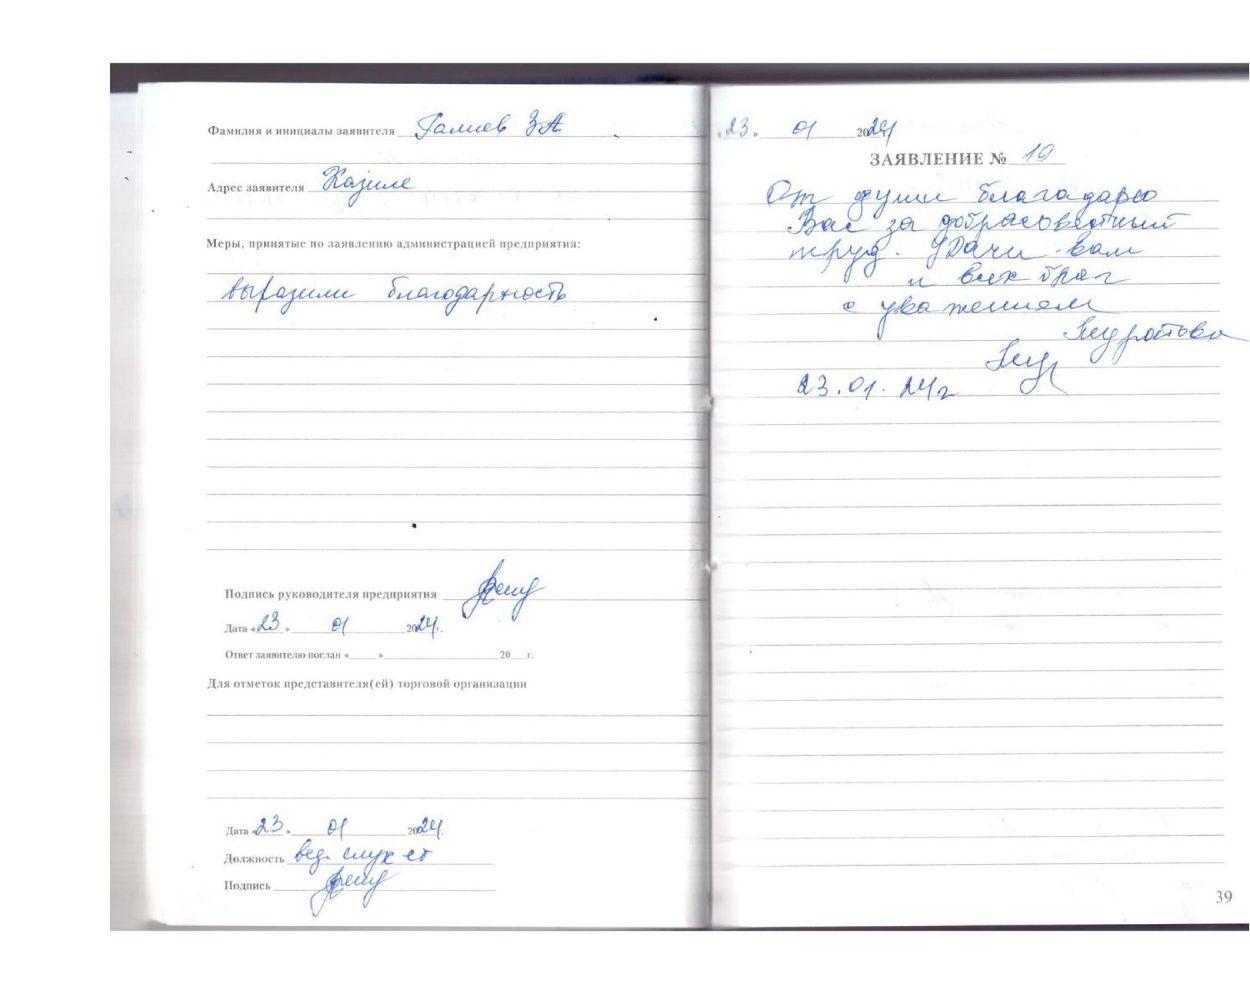 Фамилия и инициалы заявителя Галиев ЗА
Адрес заявителя
Меры, принятые по заявлению администрацией предприятия:
выразили благодарность
Подпись руководителя предприятия
Дата «23» 01 2024г.
Ответ заявителю послан «___» ___ 20__г.
Для отметок представителя(ей) торговой организации
Дата «23» 01 2024г.
Должность вед.
Подпись
«23» 01 2024
ЗАЯВЛЕНИЕ № 19
От души благодарю
Вас за добрасовестный
труд. Удачи вам
и всех благ
с уважением
Муратова
23.01.24г
39